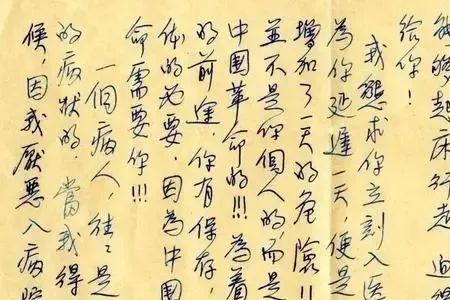 起床行走
給你！
我懇求你立刻入医
為你延遲一天，便是
增加了一天的危險!!
並不是你個人的，而是
中国革命的!!!為着
的前途，你有保存，
体的必要，因為中国
命需要你!!!
一個病人，往々是
的病狀的，當我得
候，因我厭惡入病